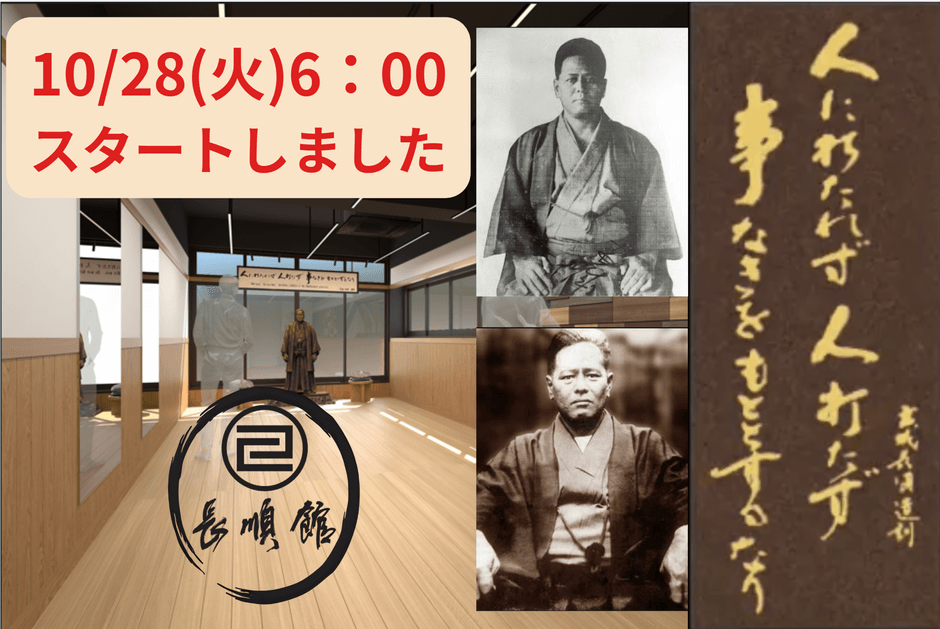 10/28(火)6：00
スタートしました
人に打たれず 人打たず
事なきをもととするなり
宮城長順遺訓
人に打たれず 人打たず 事なきをもととするなり
長順館